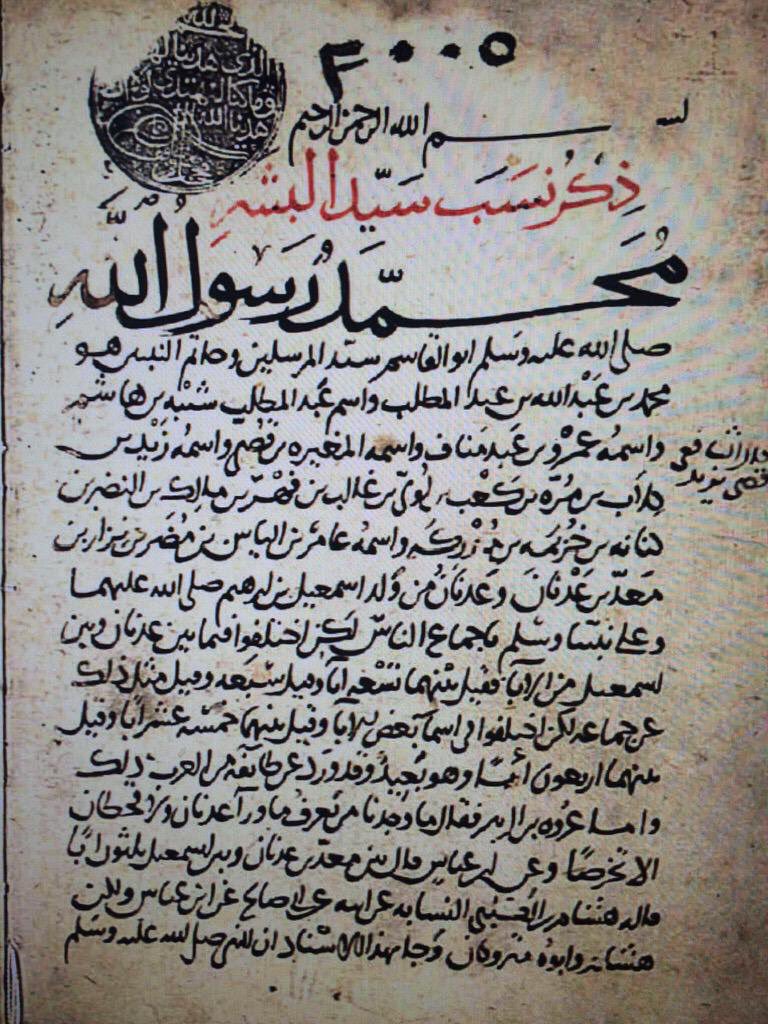 ٣٠٠٥
الحمد لله الذي هدينا لهذا وما كنا لنهتدي لولا ان هدينا الله
بسم الله الرحمن الرحيم
ذِكْرُ نَسَبِ سَيِّدِ البَشَرِ
مُحَمَّدٌ رَسُولُ اللَّهِ
صلى الله عليه وسلم ابو القاسم سيد المرسلين وخاتم النبيين هو
محمد بن عَبْد الله بن عبد المطلب واسم عَبد المطلب شَيْبَه بن هاشم
واسمُه عَمْرو بن عَبد مَناف واسمه المغيره بن قُصَي واسمُه زَيْد بن
كِلاَب بن مُرّه بن كَعْب بن لُوىّ بن غالب بن فِهْر بن مالك بن النضر بن
كنانه بن خُزَيمَه بن مُدْرِكَه واسمهُ عامر بن الياس بن مُضَر بن نزار بن
مَعَدّ بن عَدْنَانَ وعَدنَانُ من وُلد اسمعيل بن ابرهيم صلى الله عليهما
وعلى نبيّنا وسَلم باجماع الناس لَكِن اختلفوا فيما بين عدنان وبين
اسمعيل من الابآ فقيل بينهما تسْعَه آبآ وقيل سَبعَه وقيل مثل ذلك
عن جماعه لكن اختلفوا في اسمآ بعض الابآ وقيل بينهما خمسَه عشر ابًا وقيل
بينهما اربعون أبًا وهو بَعيدٌ وقد وَرَد عن طآئفه من العرب ذلك
وامـا عُروه بن الزبير فقال ما وَجدنا من يَعرف ما ورآ عدنان ولا قحطان
الا تخَرصًا وعن ابن عباس قال بين معدّ بن عدنان وبين اسمعيل ثلثون ابًا
قاله هشام بن الكلبي النسابه عن ابيه عن ابي صالح عن ابن عباس ولكن
هشام وابوه متروكان وجآ بهذا الاسناد ان النبي صلى الله عليه وسلم